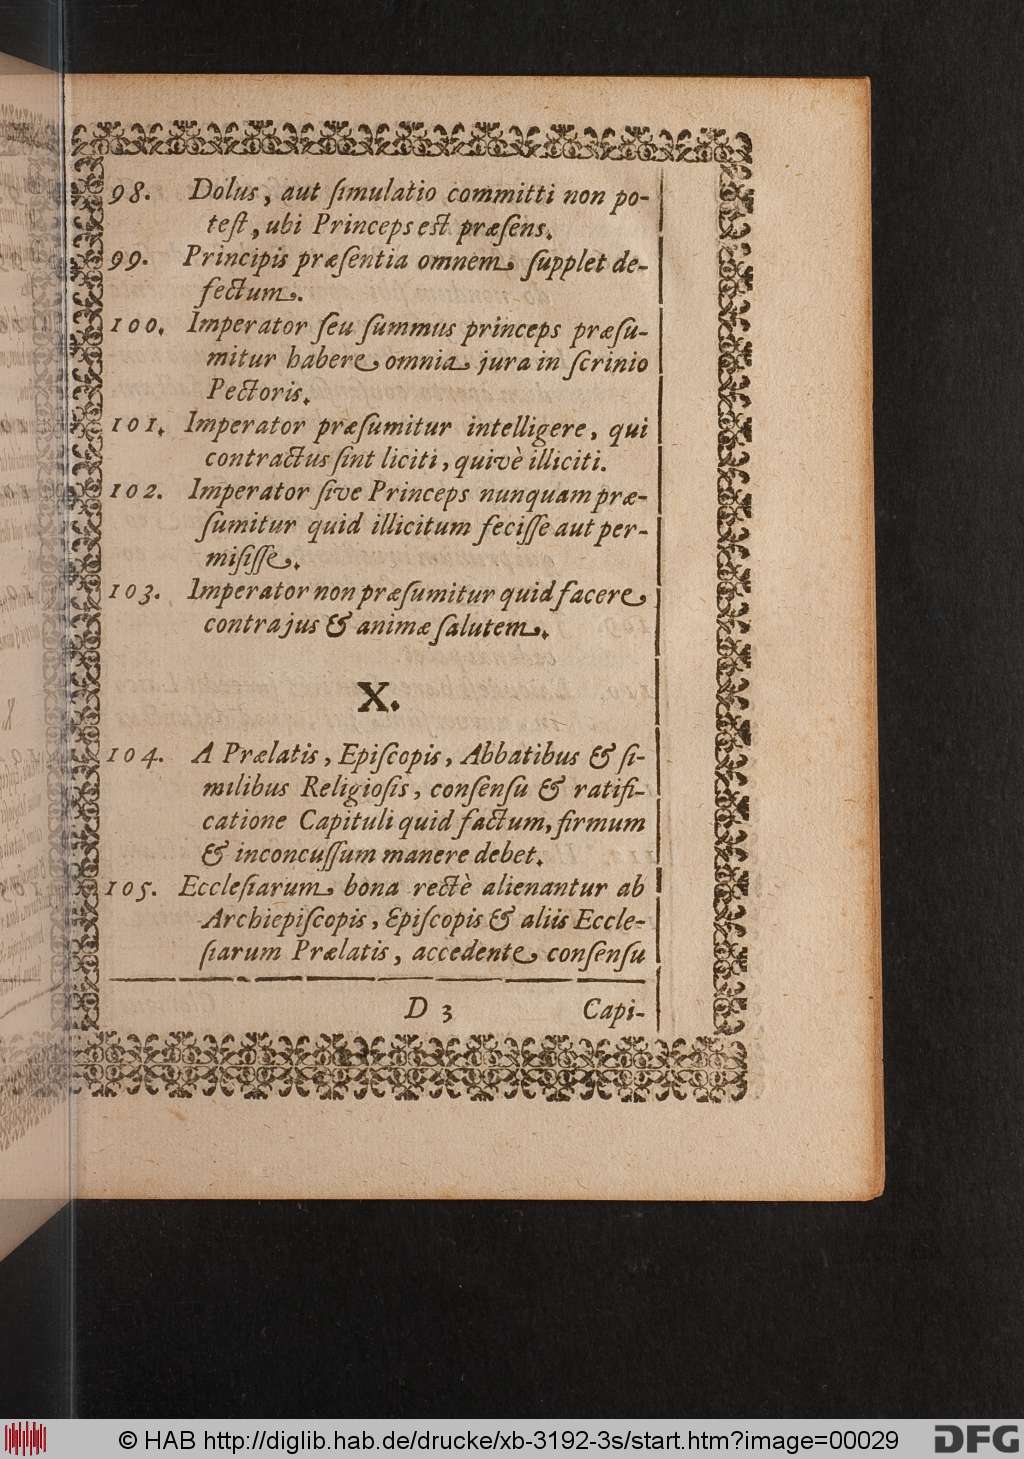 98. Dolus, aut ſimulatio committi non po-
teſt, ubi Princeps est præſens.
99. Principis præſentia omnem ſupplet de-
fectum.
100. Imperator ſeu ſummus princeps præſu-
mitur habere omnia jura in ſcrinio
Pectoris.
101. Imperator præſumitur intelligere, qui
contractus ſint liciti, quivè illiciti.
102. Imperator ſive Princeps nunquam præ-
ſumitur quid illicitum feciſſe aut per-
miſiſſe.
103. Imperator non præſumitur quid facere
contra jus & animæ ſalutem.
X.
104. A Prælatis, Epiſcopis, Abbatibus & ſi-
milibus Religioſis, conſenſu & ratifi-
catione Capituli quid factum, firmum
& inconcuſſum manere debet.
105. Eccleſiarum bona rectè alienantur ab
Archiepiſcopis, Epiſcopis & aliis Eccle-
ſiarum Prælatis, accedente conſenſu
D 3 Capi-
© HAB http://diglib.hab.de/drucke/xb-3192-3s/start.htm?image=00029
DFG